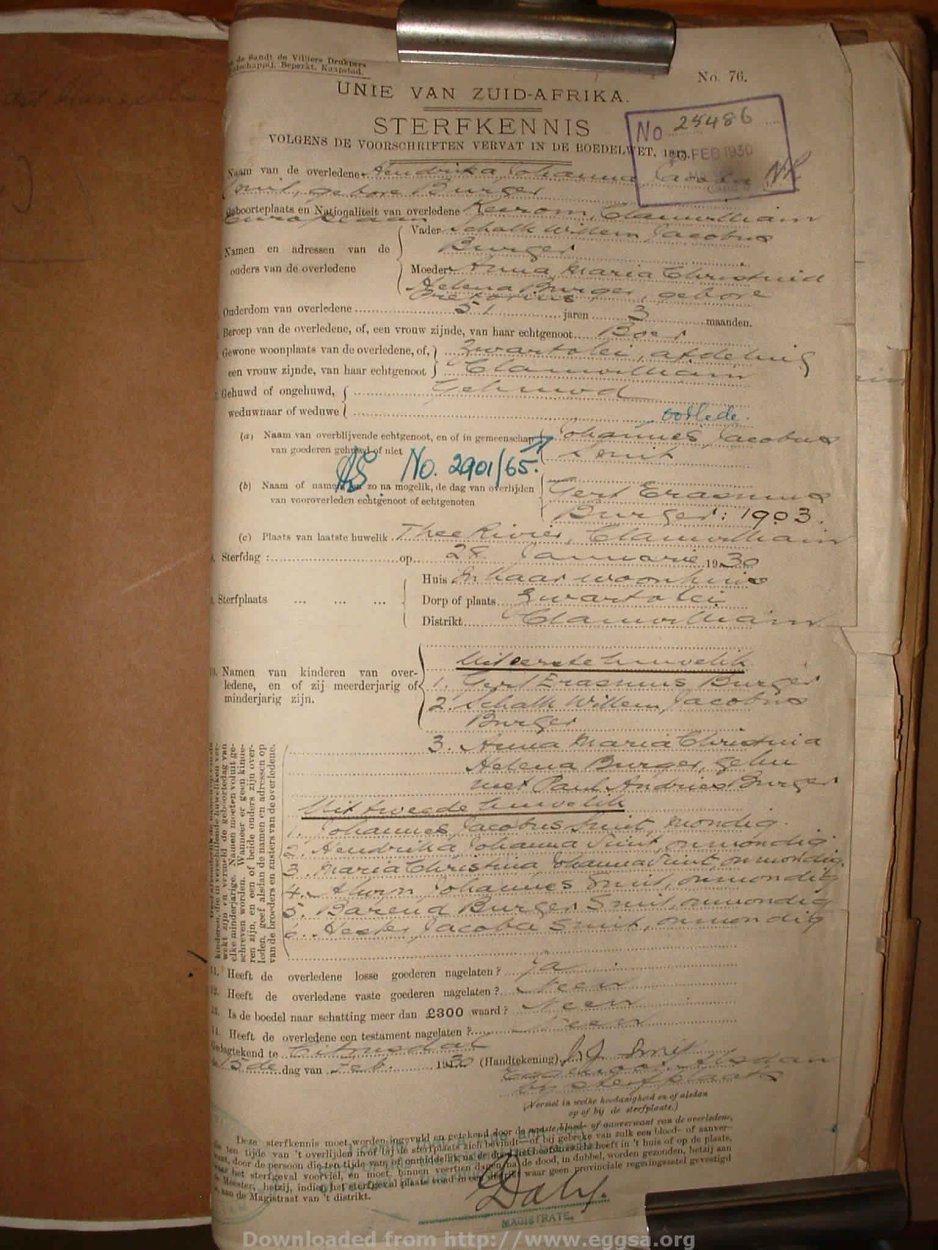 de Sandt de Villiers Drukpers
Maatschappij, Beperkt, Kaapstad.
No. 76.
UNIE VAN ZUID-AFRIKA.
STERFKENNIS
VOLGENS DE VOORSCHRIFTEN VERVAT IN DE BOEDELWET, 1913.
No 25486
FEB 1930
Naam van de overledene Hendrika Johanna
Smit, gebore Burger
Geboorteplaats en Nationaliteit van overledene Keerom, Clanwilliam
Europeaan
Namen en adressen van de
ouders van de overledene
Vader Schalk Willem Jacobus
Burger
Moeder Anna Maria Christina
Helena Burger, gebore
Pretorius
Ouderdom van overledene 51 jaren 3 maanden.
Beroep van de overledene, of, een vrouw zijnde, van haar echtgenoot Boer
Gewone woonplaats van de overledene, of,
een vrouw zijnde, van haar echtgenoot
Zwartvlei, afdeling
Clanwilliam
Gehuwd of ongehuwd,
weduwnaar of weduwe
Gehuwd
oorlede.
(a) Naam van overblijvende echtgenoot, en of in gemeenschap
van goederen gehuwd of niet
Johannes Jacobus
Smit
No. 2901/65.
(b) Naam of namen en zo na mogelik, de dag van overlijden
van vooroverleden echtgenoot of echtgenoten
Gert Erasmus
Burger: 1903.
(c) Plaats van laatste huwelik Thee Rivier, Clanwilliam
Sterfdag: op 28 Januarie 1930
Sterfplaats
Huis In haar woonhuis
Dorp of plaats Zwartvlei
Distrikt Clanwilliam
10. Namen van kinderen van over-
ledene, en of zij meerderjarig of
minderjarig zijn.
Uit eerste huwelik
1. Gert Erasmus Burger
2. Schalk Willem Jacobus
Burger
3. Anna Maria Christina
Helena Burger, gehu
met Paul Andries Burger
Uit tweede huwelik
1. Johannes Jacobus Smit, mondig.
2. Hendrika Johanna Smit, onmondig
3. Maria Christina Johanna Smit onmondig
4. Johannes Smit, onmondig
5. Barend Burger Smit, onmondig
6. Hester Jacoba Smit, onmondig
kinderen, die in verschillende huweliken ver-
wekt zijn en vermeld de geboortedag van
elke minderjarige. Namen moeten voluit ge-
schreven worden. Wanneer er geen kinde-
ren zijn, en een of beide ouders zijn over-
leden, geef alsdan de namen en adressen op
van de broeders en zusters van de overledene.
11. Heeft de overledene losse goederen nagelaten? Ja
12. Heeft de overledene vaste goederen nagelaten? Neen
13. Is de boedel naar schatting meer dan £300 waard? Neen
14. Heeft de overledene een testament nagelaten? Neen
Gedagtekend te Citrusdal
de 15de dag van Feb. 1930 (Handtekening) J. J. Smit
by sterfplaats
(Vermel in welke hoedanigheid en of alsdan
op of bij de sterfplaats.)
Deze sterfkennis moet worden ingevuld en getekend door de naaste bloed- of aanverwant van de overledene,
die ten tijde van 't overlijden in of bij de sterfplaats zich bevindt—of bij gebreke van zulk een bloed- of aanver-
want, door de persoon die ten tijde van of onmiddellik na de dood het hoofdtoezicht heeft in 't huis of op de plaats,
waar het sterfgeval voorviel, en moet binnen veertien dagen na de dood, in dubbel, worden gezonden, hetzij aan
de Meester, hetzij, indien het sterfgeval plaats vond in een distrikt waar geen provinciale regeringszetel gevestigd
is, aan de Magistraat van 't distrikt.
Daly.
MAGISTRATE.
Downloaded from http://www.eggsa.org